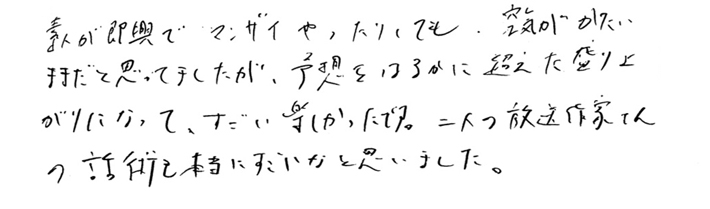 素人が即興でマンザイやったりしても、空気がかたい
ままだと思ってましたが、予想をはるかに超えた盛り上
がりになって、すごい楽しかったです。二人の放送作家さん
の話術も本当にすごいなと思いました。